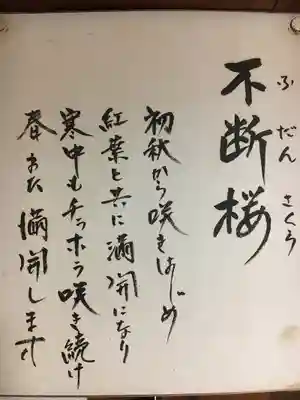 不断桜
ふだんさくら
初秋から咲きはじめ
紅葉と共に満開になり
寒中もチラホラ咲き続け
春また満開します